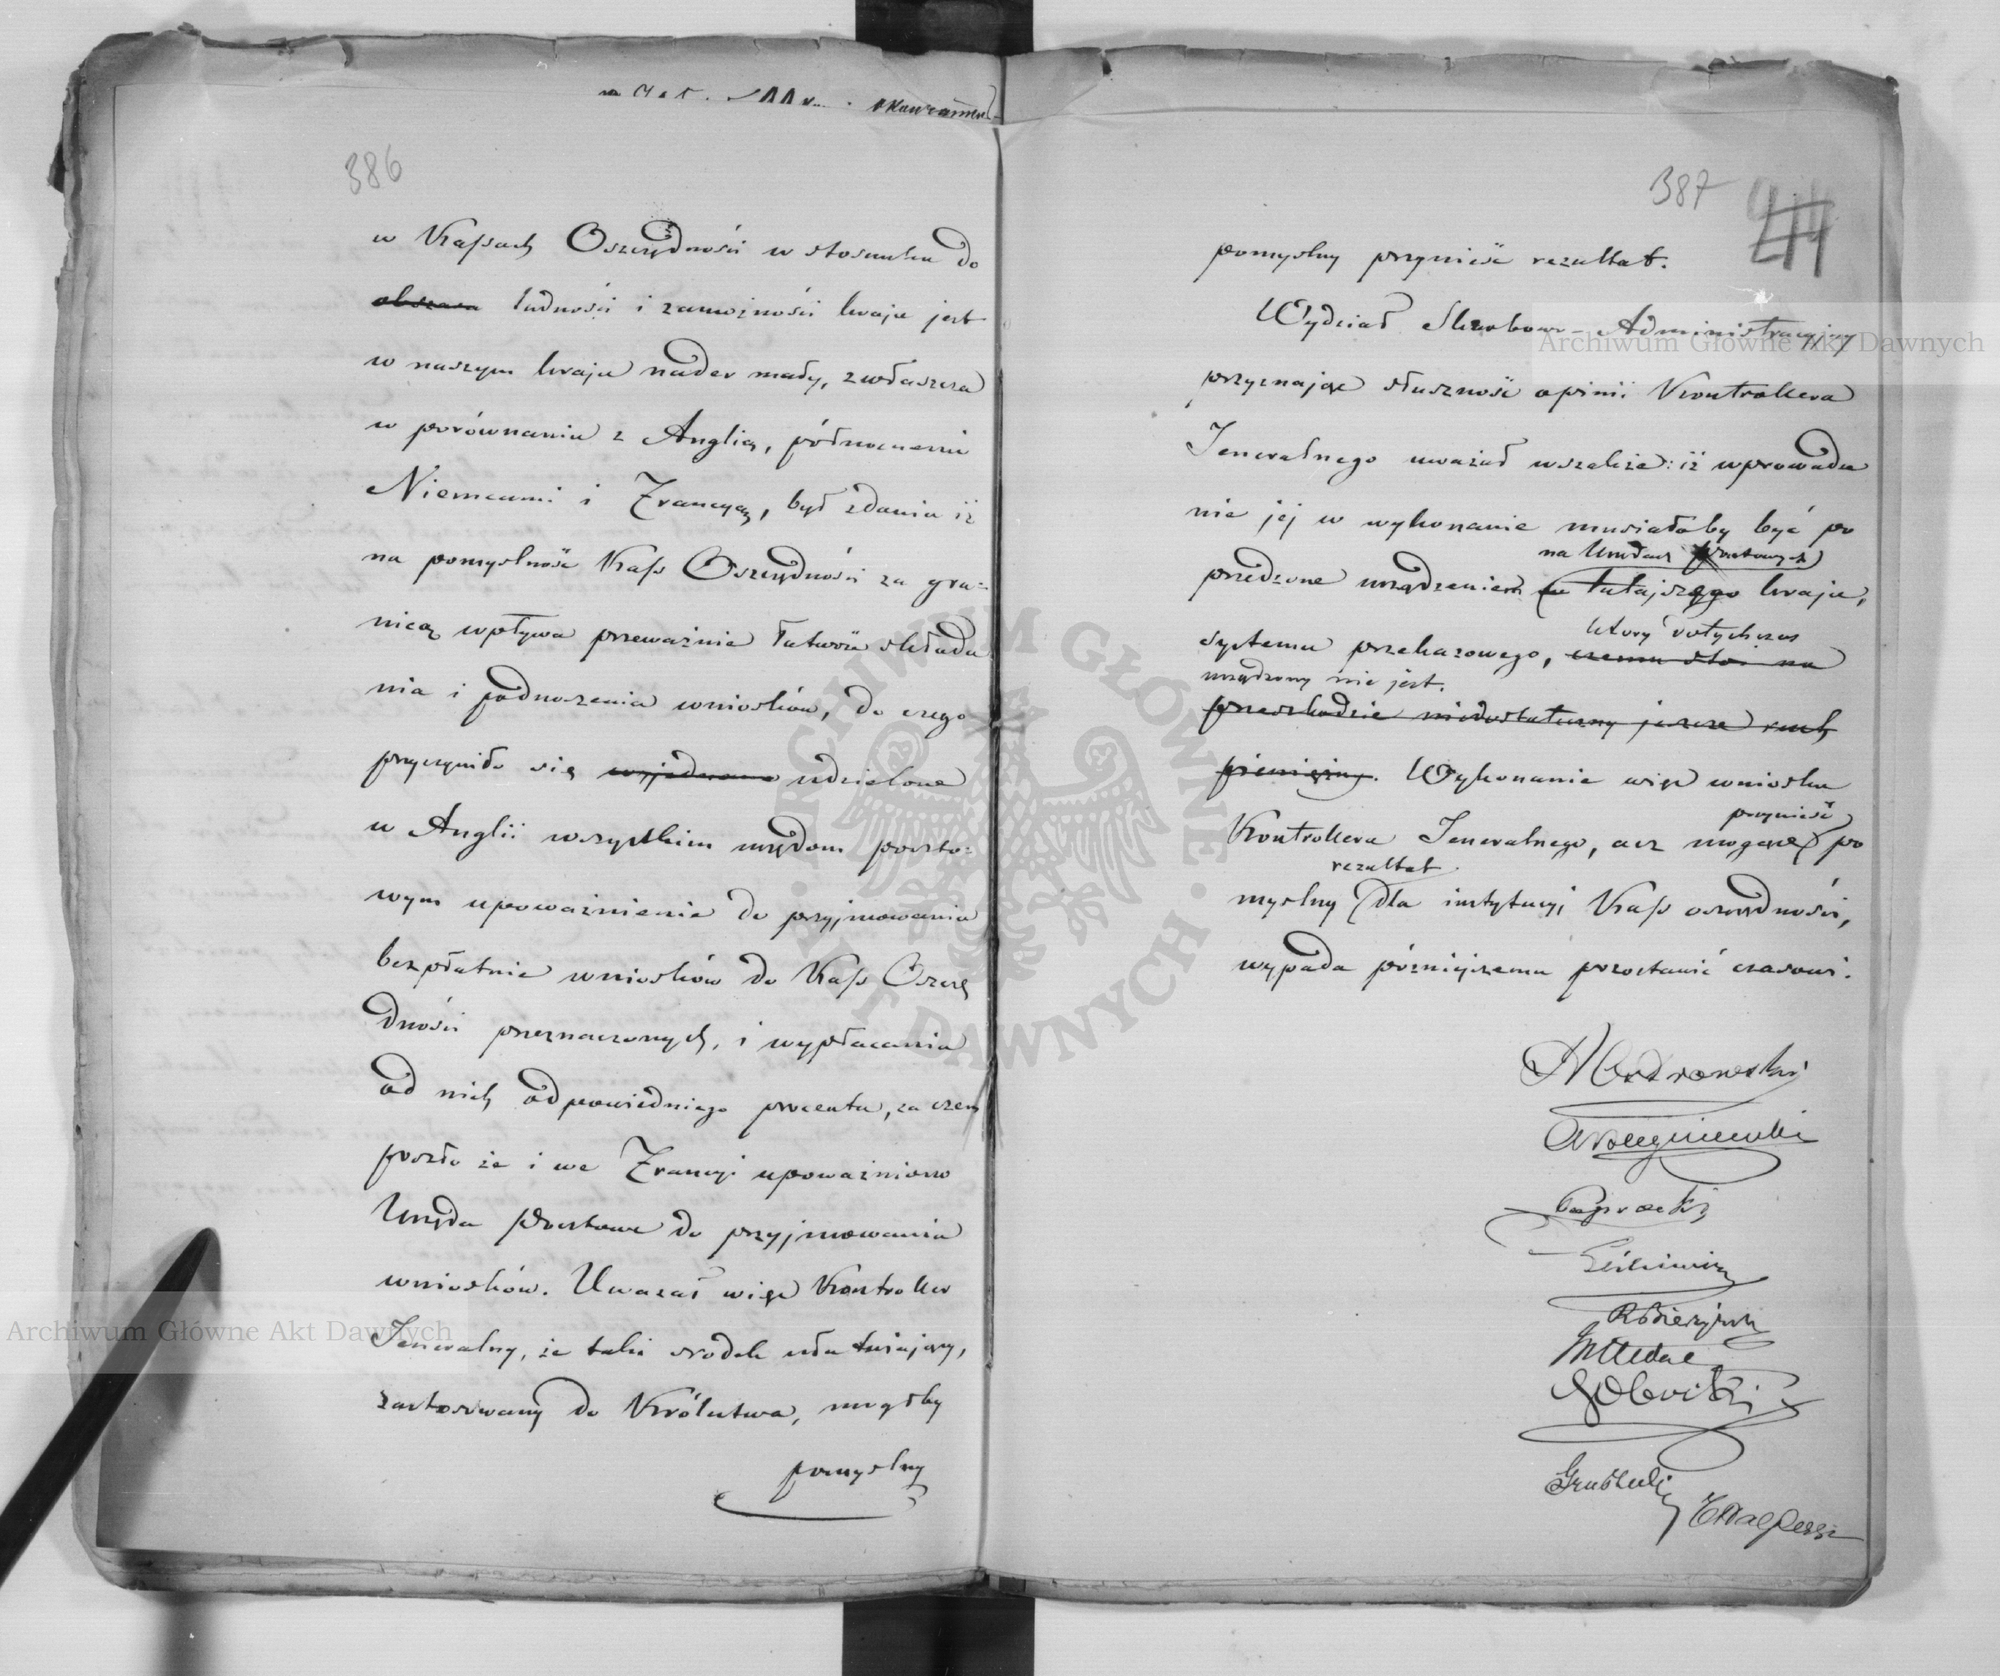 386
w Kassach Oszczędności w stosunku do
obszaru ludności i zamożności kraju jest
w naszym kraju nader mały, zwłaszcza
w porównaniu z Anglią, północnemi
Niemcami i Francyą, był zdania iż
na pomyślność Kass Oszczędności za gra=
nicą wpływa przeważnie łatwość składa
nia i podnoszenia wniosków, do czego
przyczyniło się wyjednane udzielone
w Anglii wszystkim urzędom poczto=
wym upoważnienie do przyjmowania
bezpłatnie wniosków do Kass Oszczę
dności przeznaczonych, i wypłacania
od nich odpowiedniego procentu, za czem
poszło że i we Francyi upoważniono
Urzęda Pocztowe do przyjmowania
wniosków. Uważał więc Kontroller
Jeneralny, że taki srodek ułatwiający,
zastosowany do Królestwa, mógłby
pomyślny
387
pomyślny przynieść rezultat.
Wydział Skarbowo-Administracyjny
przyznając słuszność opinii Kontrollera
Jeneralnego uważał wszakże: iż wprowadze
nie jej w wykonanie musiałoby być po
na Urzędach Pocztowych
przedzone urządzeniem w tutajszego kraju,
który dotychczas
systemu przekazowego, czemu stoi na
urządzony nie jest.
przeszkodzie niedostateczny jeszcze ruch
pieniężny. Wykonanie więc wniosku
przynieść
Kontrollera Jeneralnego, acz mogące po
rezultat
myślny dla instytucyi Kass oszczędności,
wypada późniejszemu pozostawić czasowi.
Paprocki
Archiwum Główne Akt Dawnych
Archiwum Główne Akt Dawnych
ARCHIWUM GŁÓWNE AKT DAWNYCH